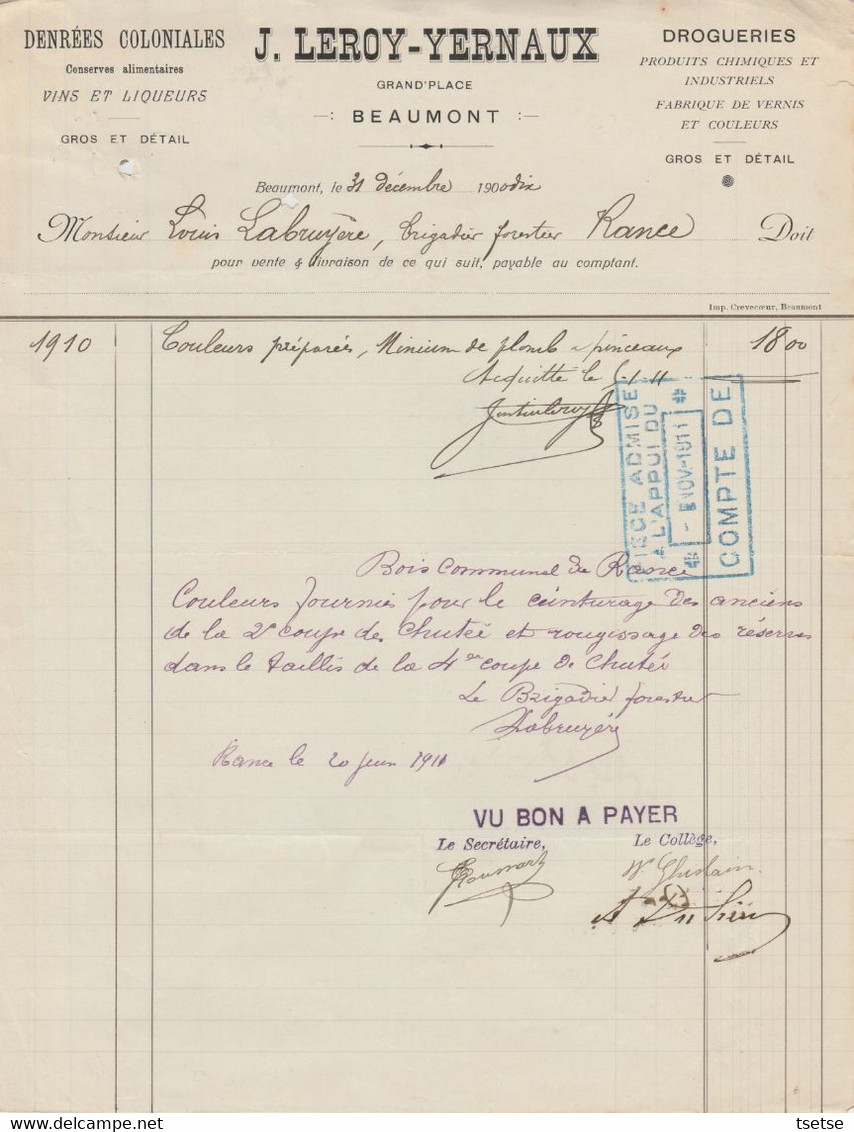 DENRÉES COLONIALES
Conserves alimentaires
VINS ET LIQUEURS
GROS ET DÉTAIL
J. LEROY-YERNAUX
GRAND'PLACE
BEAUMONT
DROGUERIES
PRODUITS CHIMIQUES ET
INDUSTRIELS
FABRIQUE DE VERNIS
ET COULEURS
GROS ET DÉTAIL
Beaumont, le 31 décembre 1900 dix
Monsieur Louis Labruyère, brigadier forestier Rance Doit
pour vente & livraison de ce qui suit, payable au comptant.
Imp. Crevecœur, Beaumont
1910 Couleurs préparées, Minium de plomb - pinceaux 18 00
Acquitté le 5-1-11
Justin Leroy
IECE ADMISE
A L'APPUI DU
NOV-1911
COMPTE DE
Bois Communal de Rance
Couleurs fournies pour le ceinturage des anciens
de la 2e coupe de Chutei et rougissage des réserves
dans le taillis de la 4e coupe de Chutei
Le Brigadier forestier
Labruyère
Rance le 20 juin 1911
VU BON A PAYER
Le Secrétaire,
Le Collège,
Ghislain
delcampe.net
tsetse